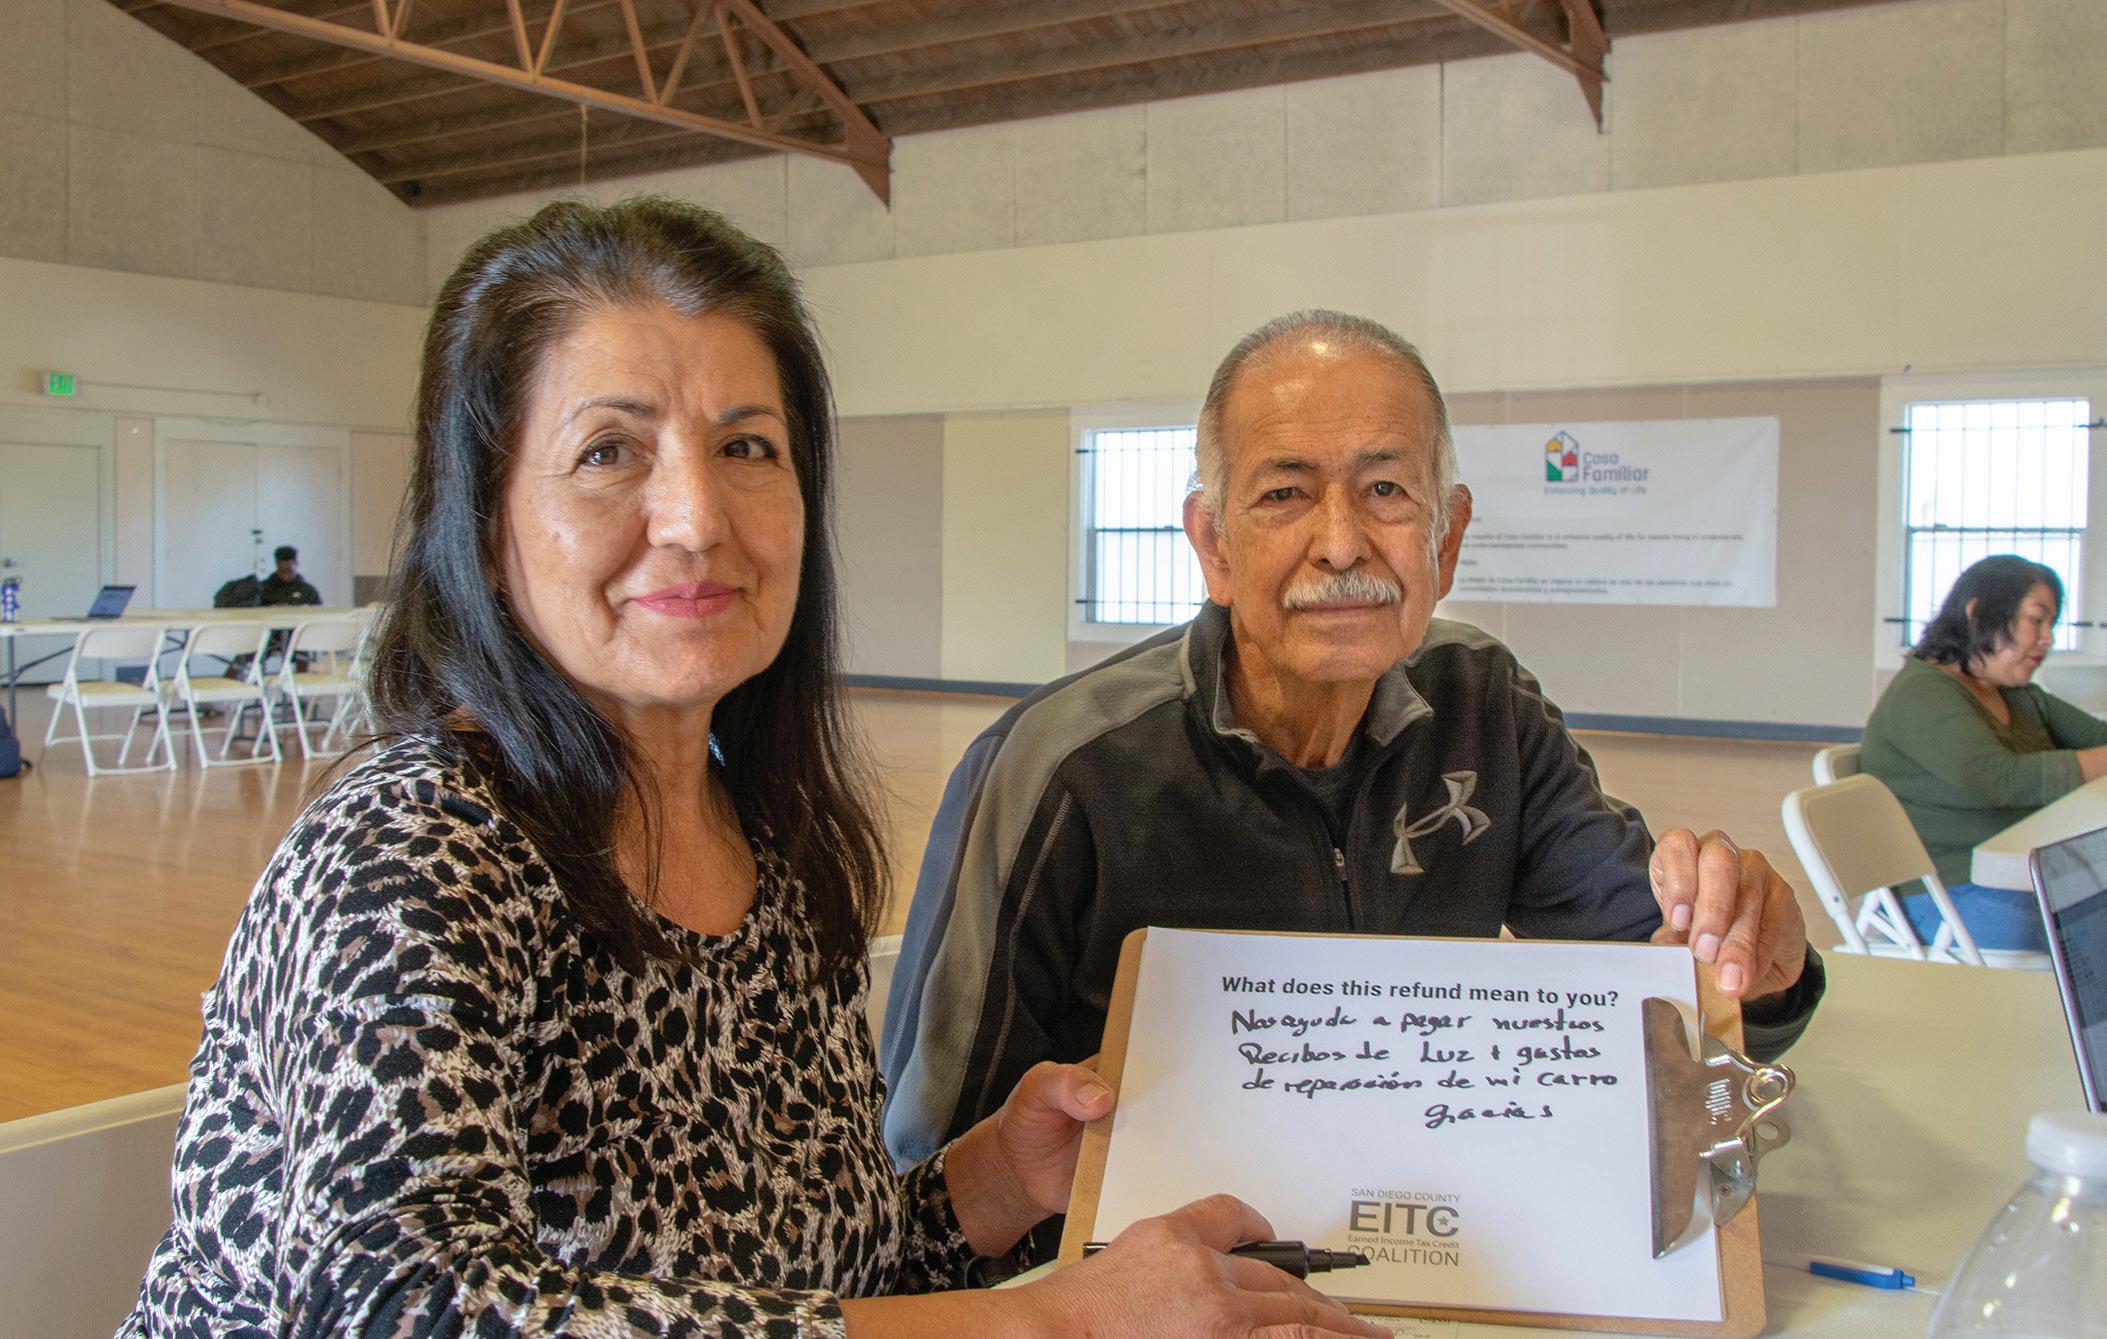 Casa
Familiar
Enhancing Quality of Life
What does this refund mean to you?
Nos ayuda a pagar nuestros
Recibos de Luz + gastos
de reparación de mi carro
gracias
SAN DIEGO COUNTY
EITC
Earned Income Tax Credit
COALITION